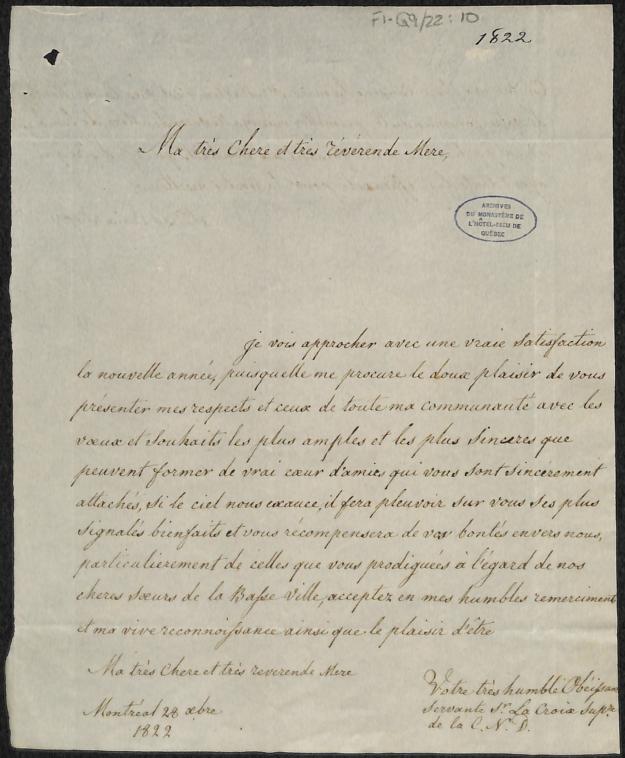 F1-G9/22:10
1822
Ma très Chere et très révérende Mere,
ARCHIVES
DU MONASTÈRE DE
L'HÔTEL-DIEU DE
QUÉBEC
je vois approcher avec une vraie satisfaction
la nouvelle année, puisquelle me procure le doux plaisir de vous
présenter mes respects et ceux de toute ma communauté avec les
vœux et souhaits les plus amples et les plus sinceres que
peuvent former de vrai cœur d'amies qui vous sont sincèrement
attachés, si le ciel nous exauce, il fera pleuvoir sur vous ses plus
signalés bienfaits et vous récompensera de vos bontés envers nous,
particulierement de celles que vous prodiguées à l'égard de nos
cheres sœurs de la Basse Ville, acceptez en mes humbles remerciment
et ma vive reconnoissance ainsi que le plaisir d'être
Ma très Chere et très reverende Mere
Votre très humble Obéissan
Servante Sr. La Croix Supre.
de la C. N. D.
Montréal 28 xbre
1822